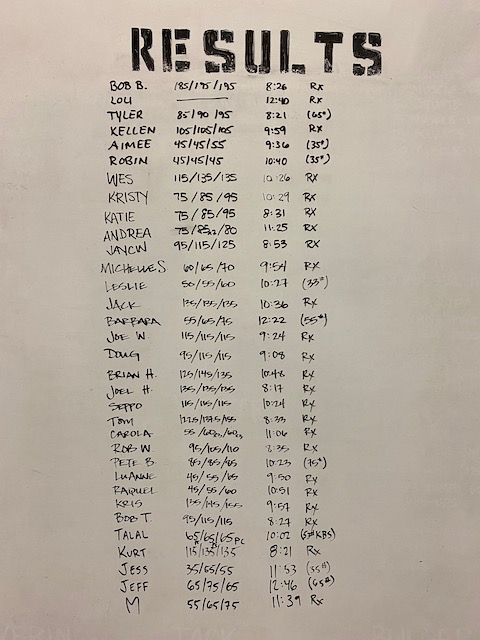 RESULTS
BOB B. 185/195/195 8:26 RX
LOU 12:40 RX
TYLER 85/90/95 8:21 (65#)
KELLEN 105/105/105 9:59 RX
AIMEE 45/45/55 9:36 (35#)
ROBIN 45/45/45 10:40 (35#)
WES 115/135/135 10:26 RX
KRISTY 75/85/95 10:29 RX
KATIE 75/85/95 8:31 RX
ANDREA /80 11:25 RX
JAYCW 95/115/125 8:53 RX
MICHELLE S 60/65/70 9:54 RX
LESLIE 50/55/60 10:27 (33#)
JACK 135/135/135 10:36 RX
BARBARA 55/65/75 12:22 (55#)
JOE W. 115/115/115 9:24 RX
DOUG 95/115/115 9:08 RX
BRIAN H. 125/145/135 10:48 RX
JOEL H. 135/135/135 8:17 RX
SEPPO 115/115/115 10:24 RX
TOM 8:33 RX
CAROLA 11:06 RX
ROB W 95/105/110 8:35 RX
PETE B. 85/85/85 10:23 (75#)
LUANNE 45/55/65 9:50 RX
RAIQUEL 45/55/60 10:51 RX
KRIS 135/145/155 9:57 RX
BOB T. 95/115/115 8:27 RX
TALAL 65/65/65 PC 10:02
KURT 115/135/135 8:21 RX
JESS 35/55/55 11:53 (35#)
JEFF 65/75/85 12:46 (65#)
M 55/65/75 11:39 RX